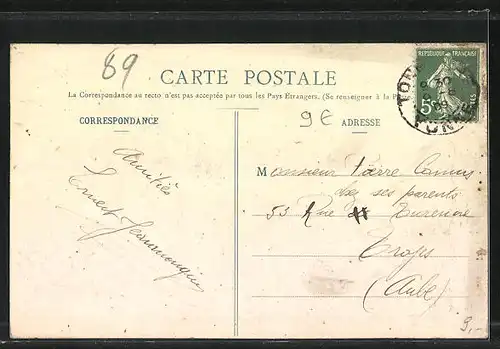 89
CARTE POSTALE
La Correspondance au recto n'est pas acceptée par tous les Pays Étrangers. (Se renseigner à la P
RÉPUBLIQUE FRANÇAISE
5
TON
YONNE
9€
CORRESPONDANCE
ADRESSE
Amitiés
Ernest
Monsieur Pierre Camus
chez ses parents
53 Rue de Turenne
Troyes
(Aube)
9,-